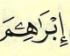 إِبْرَٰهِۦمَ